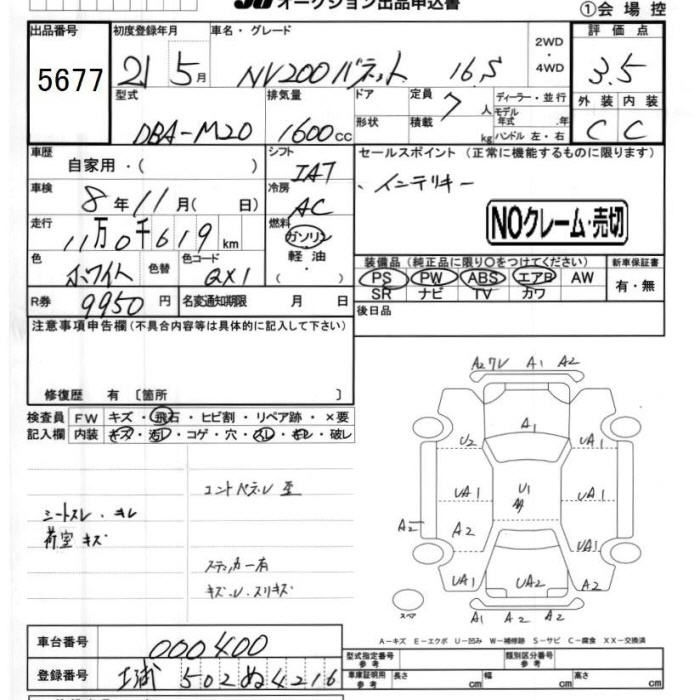 JU オークション出品申込書
①会場控
出品番号
5677
初度登録年月
21 5月
車名・グレード
NV200バネット 16.S
2WD
・
4WD
評価点
3.5
外装 内装
C C
型式
DBA-M20
排気量
1600cc
ドア
形状
定員 7人
積載 kg
ディーラー・並行
モデル年式 .年
ハンドル 左・右
車歴
自家用・( )
シフト
IAT
セールスポイント (正常に機能するものに限ります)
・インテリキー
NOクレーム・売切
車検
8年11月( 日)
冷房
AC
走行
11万0千619km
燃料
ガソリン
軽油
( )
色
ホワイト
色替
色コード
QX1
装備品(純正品に限り○をつけてください)
PS PW ABS エアB AW
SR ナビ TV カワ
新車保証書
有・無
R券
9950円
名変通知期限 月 日
後日品
注意事項申告欄(不具合内容等は具体的に記入して下さい)
修復歴 有 〔箇所 〕
検査員
記入欄
FW キズ・飛石・ヒビ割・リペア跡・×要
内装 キズ・汚レ・コゲ・穴・スレ・キレ・破レ
シートスレ・キレ
荷室キズ
コンドパネル 歪
ステッカー有
キズ・スリキズ
A2 A1 A2
A1
U2 UA1
UA1 U1 UA1
A2 A2
UA1
UA1 UA2 A2
スペア
A1 A2 A2
A-キズ E-エクボ U-凹み W-補修跡 S-サビ C-腐食 XX-交換済
車台番号
000400
登録番号
502ぬ4216
型式指定番号
参考
類別区分番号
参考
車庫証明用
参考
長さ cm 幅 cm 高さ cm